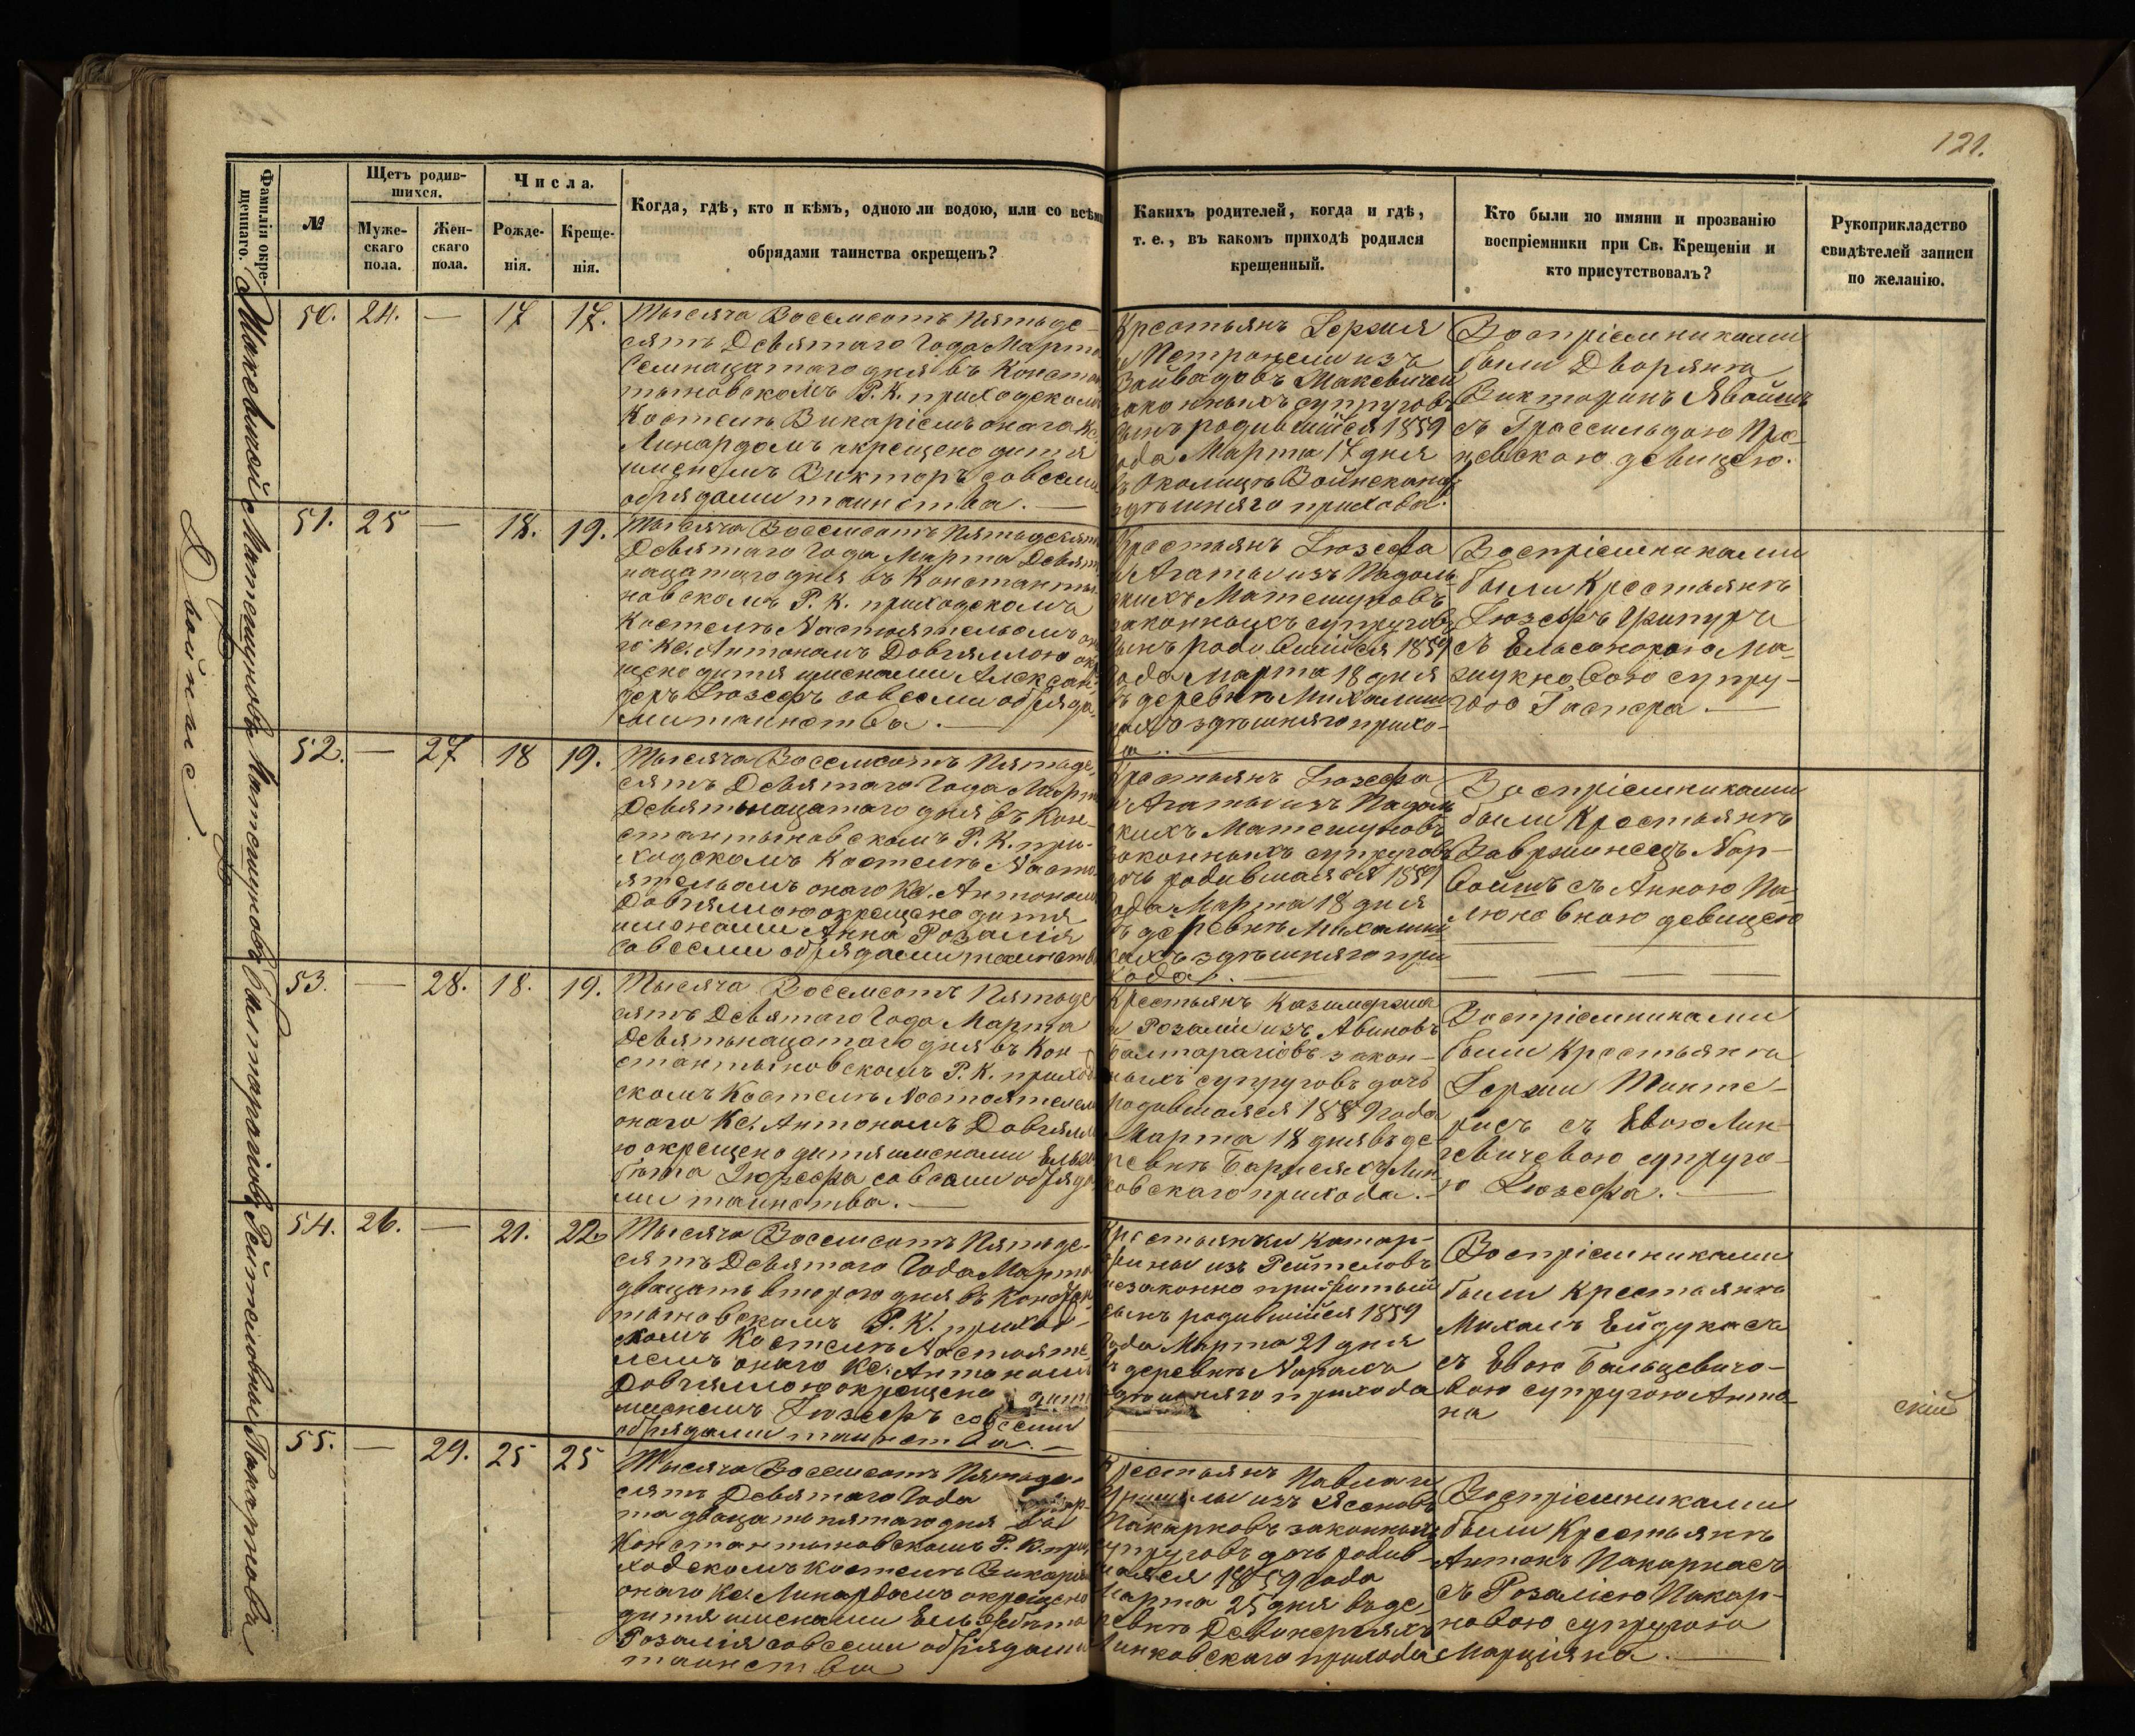 121.
Фамилія окре-
щеннаго.
№
Щетъ родив-
шихся.
Муже-
скаго
пола.
Жен-
скаго
пола.
Числа.
Рожде-
нія.
Креще-
нія.
Когда, гдѣ, кто и кѣмъ, одною ли водою, или со всѣми
обрядами таинства окрещенъ?
Какихъ родителей, когда и гдѣ,
т. е., въ какомъ приходѣ родился
крещенный.
Кто были по имяни и прозванію
воспріемники при Св. Крещеніи и
кто присутствовалъ?
Рукоприкладство
свидѣтелей записи
по желанію.
Двойнае
50. 24. — 17 17.
Тысяча Восемсотъ Пятьде-
сятъ Девятаго Года Марта
Семнацатаго дня въ Конста
тыновскомъ Р. К. приходскомъ
Костелѣ Викаріемъ онаго Кс.
Линардомъ окрещено дитя
именемъ Викторъ совсеми
обрядами таинства. —
Крестьянъ Іержія
и Петронели изъ
Войвадовъ Макевичей
законныхъ супруговъ
сынъ родившійся 1859
года Марта 17 дня
въ Околицѣ Войнскаму
здѣшняго прихода.
Воспріемниками
были Дворянка
Викторинъ Явойшъ
съ Грассильдою
девицею.
51. 25 — 18. 19.
Тысяча Восемсотъ Пятьдесятъ
Девятаго Года Марта Девят
нацатаго дня въ Константы
новскомъ Р. К. приходскомъ
Костелѣ Настоятелемъ она
го Кс. Антономъ Довгяллою окре
щено дитя именами Александ
деръ Іюзефъ совсеми обряда
ми таинства. —
Крестьянъ Іюзефа
и Агаты изъ Падоль
скихъ Матешуновъ
законныхъ супруговъ
сынъ родившійся 1859
года Марта 18 дня
въ деревнѣ Михалиш
кахъ здѣшняго прихо-
да. —
Воспріемниками
были Крестьянъ
Іюзефъ
съ Ельсонорою Ма-
жукновою супру-
гою Гаспера. —
52. — 27 18 19.
Тысяча Восемсотъ Пятьде
сятъ Девятаго Года Марта
Девятьнацатаго дня въ Кон-
стантыновскомъ Р. К. при-
ходскомъ Костелѣ Насто
ятелемъ онаго Кс. Антоном
Довгяллою окрещено дитя
именами Анна Розалія
совсеми обрядами таинства
Крестьянъ Іюзефа
и Агаты изъ Падоль
скихъ Матешуновъ
законныхъ супруговъ
дочь родившаяся 1859
года Марта 18 дня
въ деревнѣ Михалиш
кахъ здѣшняго при
хода. —
Воспріемниками
были Крестьянъ
Вавржинецъ Нор-
войшъ съ Анною Па-
люновною девицею
53. — 28. 18. 19.
Тысяча Восемсотъ Пятьде
сятъ Девятаго Года Марта
Девятьнацатаго дня въ Кон-
стантыновскомъ Р. К. приход
скомъ Костелѣ Настоятелем
онаго Кс. Антономъ Довгялло
ю окрещено дитя именами Ельжь
бѣта Іюзефа совсеми обряда
ми таинства. —
Крестьянъ Казимержа
и Розаліи изъ Авиновъ
Балтарагіовъ закон-
ныхъ супруговъ дочь
родившаяся 1859 года
Марта 18 дня въ де
ревнѣ Лин
ковскаго прихода. —
Воспріемниками
были Крестьянъ
Іержи Шинте-
рисъ съ Евою Лин-
кевичевою супруго-
ю Іюзефа. —
54. 26. — 21. 22.
Тысяча Восемсотъ Пятьде-
сятъ Девятаго Года Марта
двацать втораго дня въ Констан
тыновскомъ Р. К. приход-
скомъ Костелѣ Настояте-
лемъ онаго Кс. Антономъ
Довгяллою окрещено дитя
именемъ Іюзефъ совсеми
обрядами таинства. —
Крестьянки Катар-
жины изъ Рейтеловъ
незаконно прижитый
сынъ родившійся 1859
года Марта 21 дня
въ деревнѣ
здѣшняго прихода
Воспріемниками
были Крестьянъ
Михалъ Ейдукасъ
съ Евою Бальцевичо-
вою супругою Анто-
на
скій
55. — 29. 25 25
Тысяча Восемсотъ Пятьде-
сятъ Девятаго Года Мар-
та двацать пятаго дня въ
Константыновскомъ Р. К. при
ходскомъ Костелѣ Викаріем
онаго Кс. Линардомъ окрещено
дитя именами Ельжбѣта
Розалія совсеми обрядами
таинства
Крестьянъ Павла и
Уршули изъ Ясеновъ
Покарновъ законныхъ
супруговъ дочь родив-
шаяся 1859 года
Марта 25 дня въ де
ревнѣ
Линковскаго прихода
Воспріемниками
были Крестьянъ
Антонъ Покарнасъ
съ Розаліею Покар-
новою супругою
Марціяна. —
Макевичей
Матешуновъ
Матешуновъ
Балтарагіовъ
Рейтеловны
Покарнова